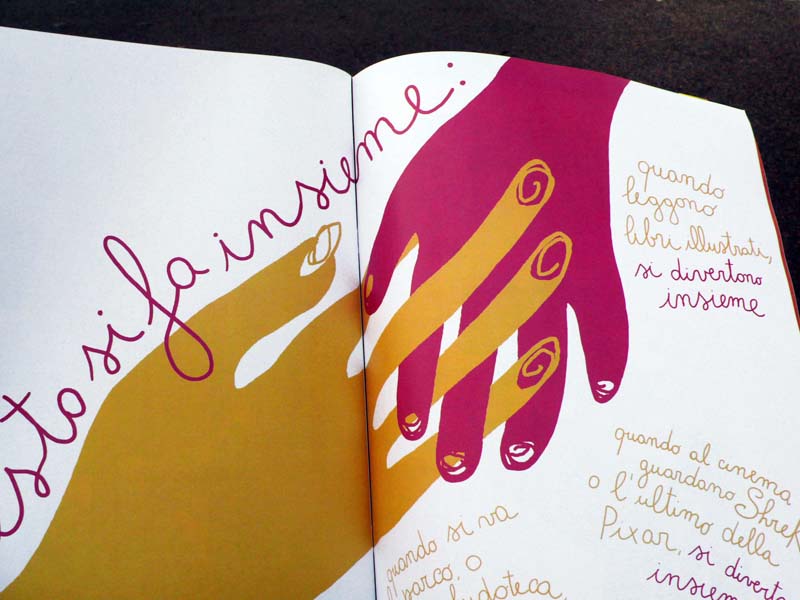 sto si fa insieme:
quando
leggono
libri illustrati,
si divertono
insieme
quando al cinema
guardano Shrek
o l'ultimo della
Pixar, si diverto
insiem
quando si va
parco, o
ludoteca,